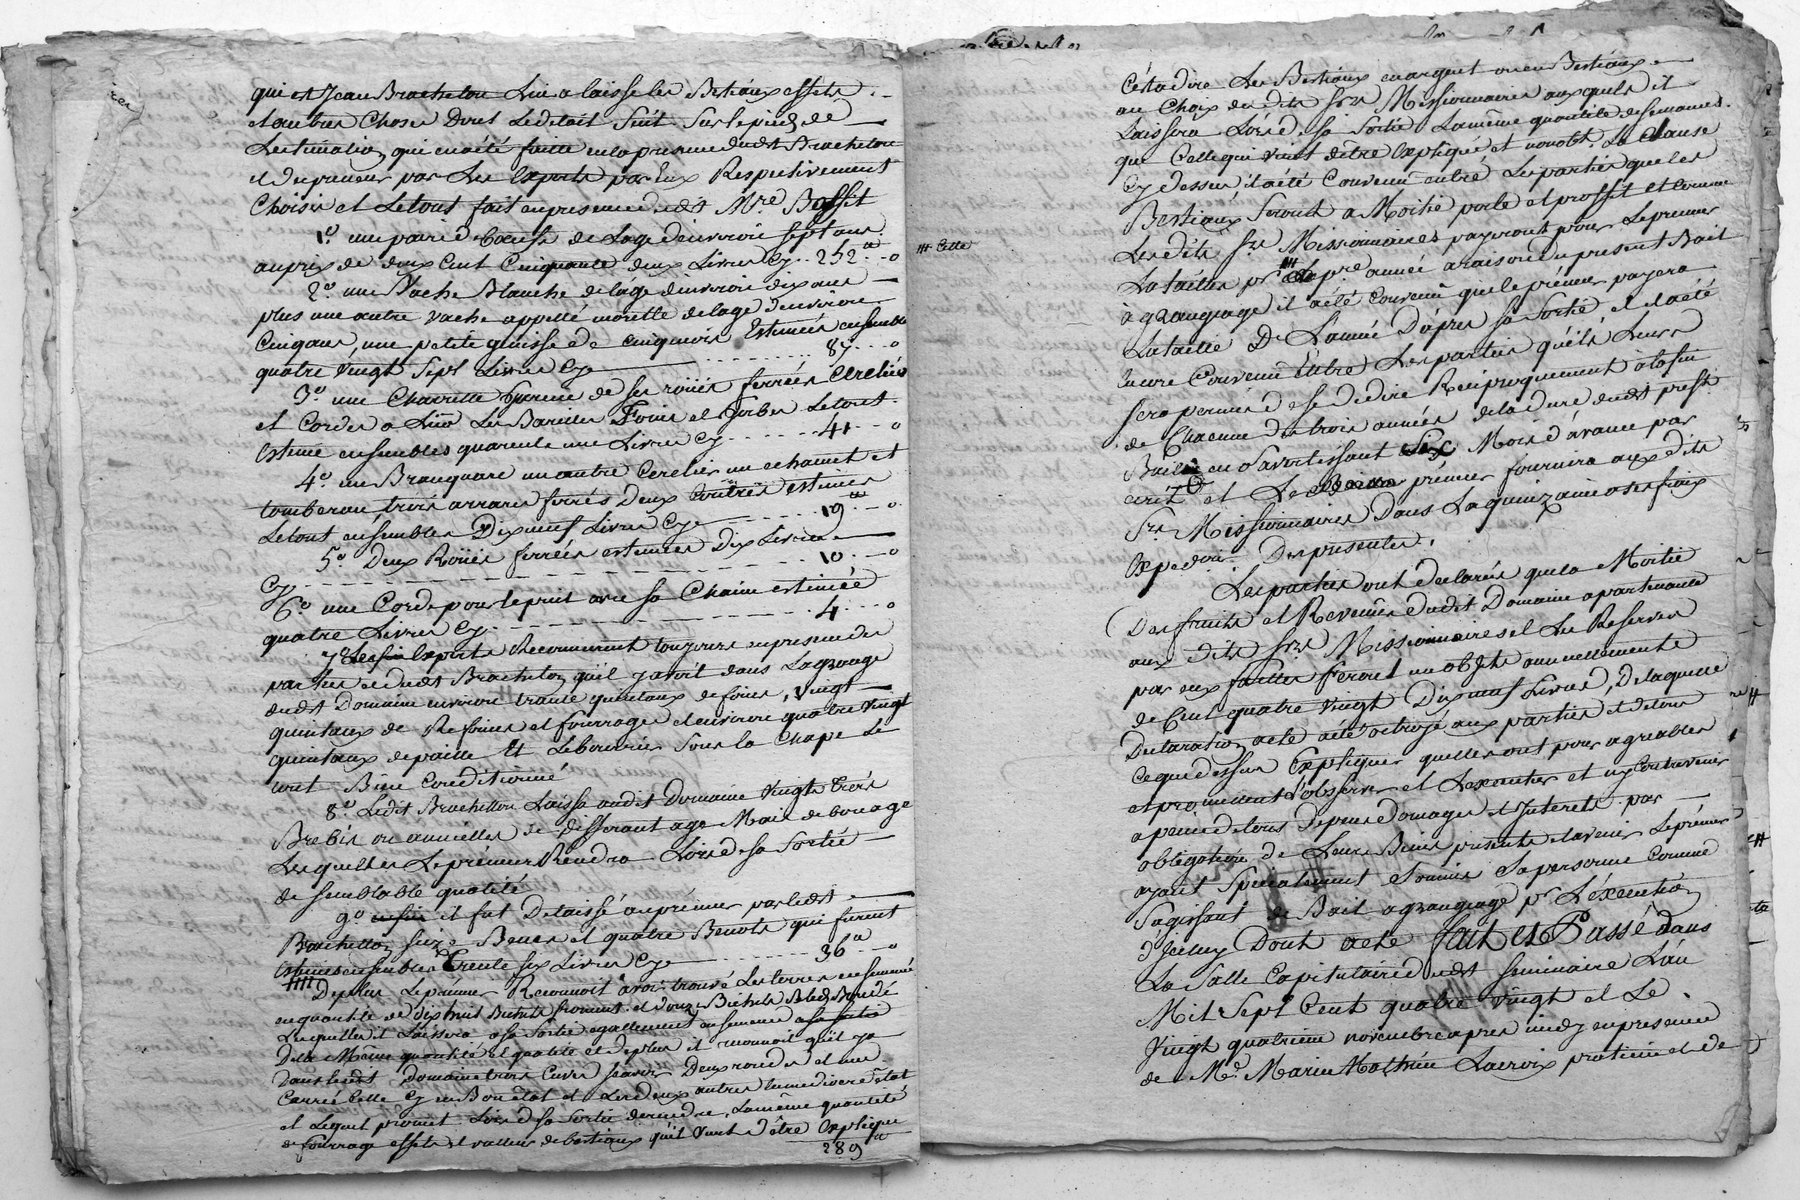 qui est Jean Brachelon luy a laissé les Bestiaux effets
et autres choses Dont le detail suit sur le pied de
Lestimation qui en a été faitte en la presence dudt Brachelon
et du preneur par les experts par Eux Respectivement
Choisis et le tout fait en presence dudt Mre Bosset
1.° une paire de Bœufs de Lage denviron sept ans
au prix de deux Cent Cinquante deux Livres Cy .. 252 .. o
2.° une Vache Blanche de lâge denviron dix ans
plus une autre vache appellé morette de lage denviron
Cinq ans, une petite genisse de cinq mois Estimées ensemble
quatre vingt sept Livres Cy 87 ... o
3.° une Charrette garnie de ses roües ferrées
et Cordes a Lier Les le tout
estimé ensembles quarente une Livres Cy 41 ... o
4.° un Brancquare un autre un echamet et
tomberau, trois arrares ferrés Deux Coûtres estimés
Le tout ensembles Dix neuf Livres Cy 19 ... o
5.° Deux Roües ferrées estimées Dix Livres
Cy 10 ... o
6.° une Corde pour le puit avec sa Chaine estimée
quatre Livres Cy 4 ... o
7.° Experts Reconnurent toujours en presence des
parties et dudt Brachelon qu'il y avoit dans Lagrange
dudt Domaine environ trante quintaux de foins, vingt
quintaux de Refoins et fourrage et environ quatre vingt
quintaux de paille Et Sous la Chape le
tout Bien Conditionné
8.° Ledit Brachellon Laissa audit Domaine Vingts trois
Brebis ou annielles de differant age Mais de bon age
Lesquelles Le préneur Rendra Lors de sa Sortie
de semblable qualité
9.° il fut Delaissé au préneur par ledt
Brachellon seize Benes et quatre Benots qui furent
estimés ensembles Trente six Livres Cy 36 .. o
De plus Le préneur Reconnoit avoir trouvé Les terres ensemencé
en quantité de dix huit Bichets froment et douze Bichets Bled
Lesquelles il Laissera a sa sortie egallement ensemencé
De la Même quantité et qualité et de plus il reconnoit qu'il y a
dans ledt Domaine trois Cuves sçavoir Deux rondes et une
Carrée Celle Cy en Bon état et Les deux autres
et Lequel promet Lors de sa sortie de rendre La même quantité
de fourrage effets et valleur de bestiaux qu'il vient d'être Expliqué
289
C'est a dire Les Bestiaux en argent ou en Bestiaux
au Choix des dits Srs Missionnaires auxquels il
Laissera Lors de sa sortie La même quantité de semances
que Celle qui vient d'être expliqué et nonobt. La Clause
Cy dessus il a été Convenu entre Les parties que les
Bestiaux seront a Moitié perte et proffit et comme
Lesdits Srs Missionnaires payeront pour Le premier
La taille pr la pre année a raison du present Bail
à grangeage il a été Convenu que le préneur payera
La taille De L'année D'après sa sortie, et il a été
encore Convenu Entre Les parties qu'il Leurs
sera permis de se dedire Reciproquement a la fin
de Chacune des trois années de la duré dudt presst.
Bail en s'avertissant Six Mois d'avance par
écrit et Le préneur fournira aux dits
Srs Missionnaires Dans La quinzaine a ses fraix
Expedon. Des presentes.
Les parties ont declarés que la Moitié
Des fruits et Revenûs dudit Domaine apartenante
aux dits Srs Missionnaires et Les Reserves
par eux faittes feront un objet annuellement
de Cent quatre Vingt Dix neuf Livres, De laquelle
Declaration acte a été octroyé aux parties et de tout
Ce que dessus Expliquer quelles ont pour agreables
et promettent L'observer et L'executer et n'y contrevenir
a peine de tous Depens Domages et Interets par
obligation de Leurs Biens presents et avenir Le préneur
ayant specialement soumis sa personne Comme
s'agissant de Bail a grangeage pr L'execution
d'Iceluy Dont acte fait et Passé Dans
La Salle Capitulaire dudt seminaire L'an
Mil Sept Cent quatre vingt et Le
Vingt quatrieme novembre apres midy en presence
de Me. Marie Mathieu Lacroix praticien et de
Celle